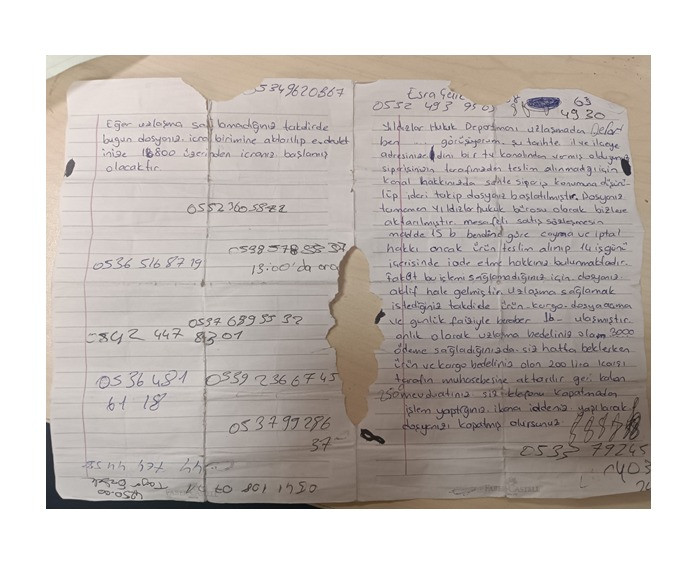 05349620867
Eğer uzlaşma sağlamadığınız takdirde
bugün dosyanız icra birimine aktarılıp e.devlet
inize 18800 üzerinden icranız başlamış
olacaktır.
0536 516 87 19
13:00'da ara
0537 689 55 32
842 447 8301
0536 481
61 18
0539 236 67 45
053799286
37
0541 108 07 01
Esra
0552 493 95 03
63
49 30
Yıldızlar Hukuk Departmanı uzlaşmadan
ben görüşüyorum. şu tarihte il ve ilçeye
adresinize dini bir tv kanalından vermiş olduğunuz
siparişinizin tarafınızdan teslim alınmadığı için
kanal hakkınızda sahte sipariş konumuna düşü
lüp ideri takip dosyanız başlatılmıştır. Dosyanız
tamamen yıldızlar hukuk bürosu olarak bizlere
aktarılmıştır. mesafeli satış sözleşmesin
madde 15 b bendine göre cayma ve iptal
hakkı ancak ürün teslim alınıp 14 iş günü
içerisinde iade etme hakkınız bulunmaktadır.
fakat bu işlemi sağlamadığınız için dosyanız
aktif hale gelmiştir. uzlaşma sağlamak
istediğiniz takdirde ürün kargo dosya açma
ve günlük faiziyle beraber ulaşmıştır
anlık olarak uzlaşma bedeliniz olan 3000
ödeme sağladığınızda siz hatta beklerken
ürün ve kargo bedeliniz olan 200 lira karşı
tarafın muhasebesine aktarılır geri kalan
mevduatınız siz telefonu kapatmadan
işlem yaptığınız ibana iadeniz yapılarak
dosyanızı kapatmış olursunuz
0533 79245